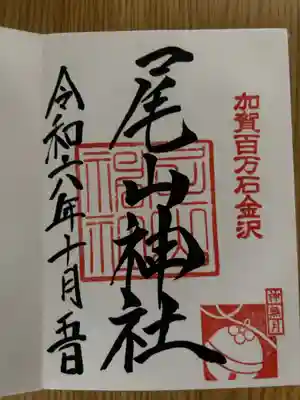 加賀百万石金沢
尾山神社
令和六年十月五日
神無月